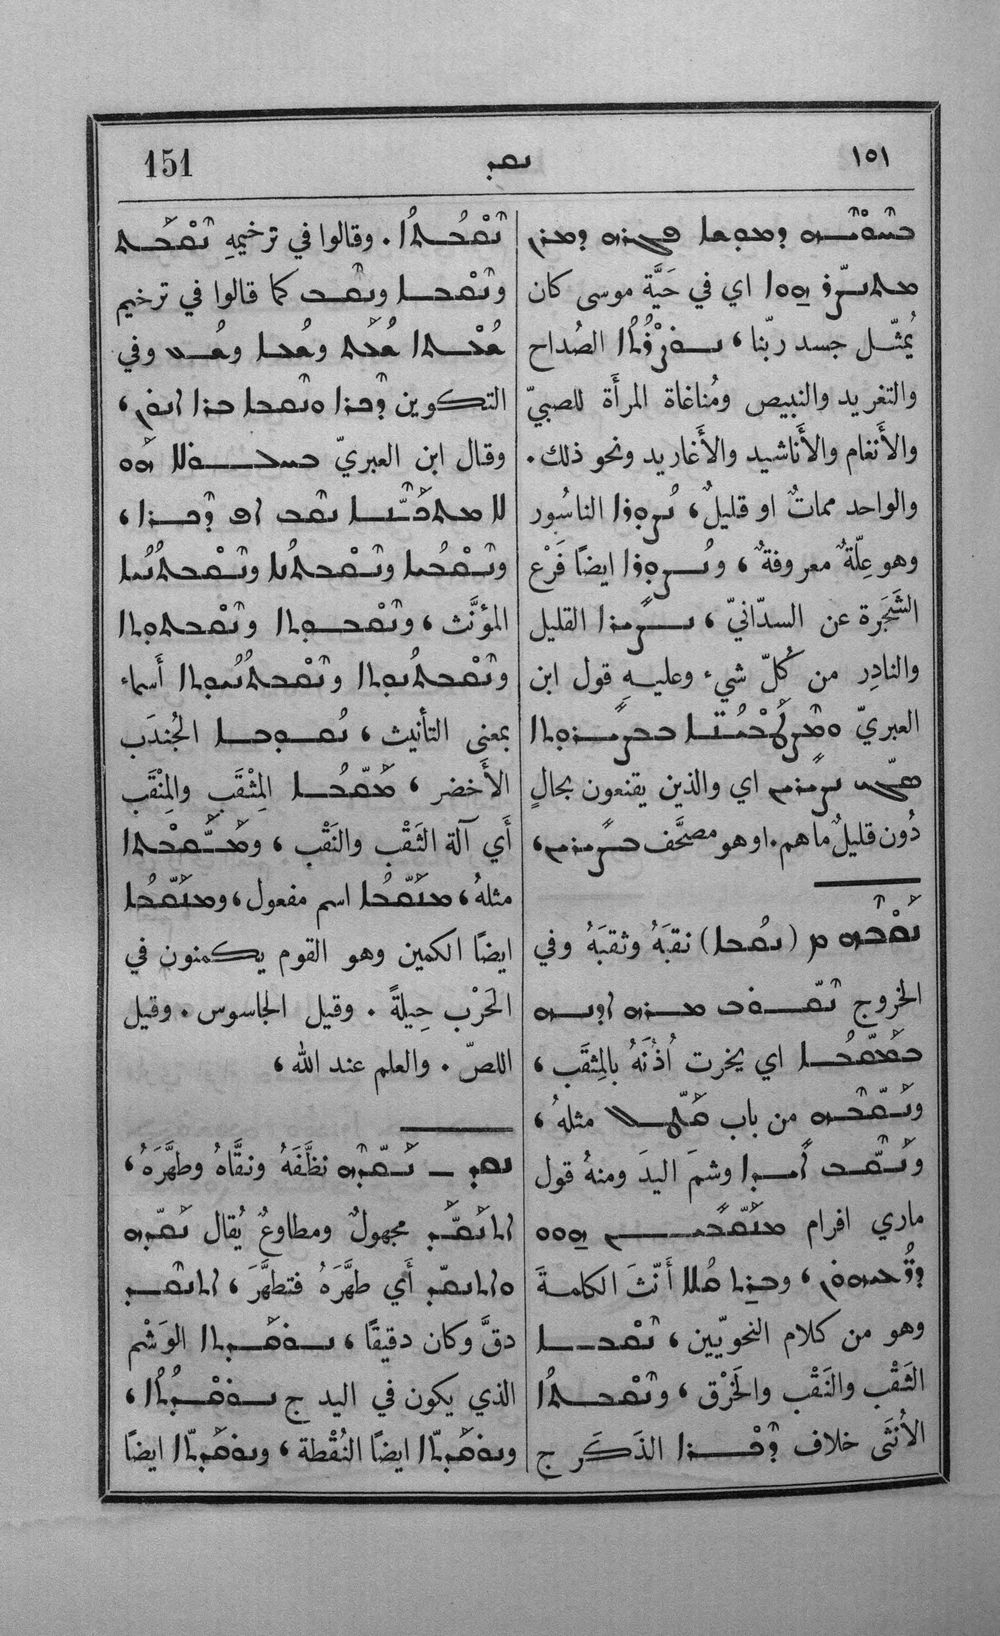 ١٥١ ܢܩܕ 151
ܕܡܘܫܐ ܦܓܪܗ ܕܡܪܢ
ܗܘܐ اي في حَيَّة موسى كان
يُمثّل جسد ربّنا، الصُداح
والتغريد والنبيص ومُناغاة المرأَة للصبيّ
والأَنغام والأَناشيد والأَغاريد ونحو ذلك.
والواحد مماتٌ او قليلٌ، ܢܨܘܪܐ الناسُور
وهو عِلّةٌ معروفةٌ، ܘܢܨܘܪܐ ايضًا فَرْع
الشَجَرة عن السدّانيّ، ܢܨܝܪܐ القليل
والنادِر من كُلّ شيء وعليهِ قول ابن
العبريّ ܒܒܨܝܪܘܬܐ
ܣܓܝ ܢܨܝܪܝܢ اي والذين يقنعون بحالٍ
دُون قليلٌ ما هم. او هو مصحَّف ܒܨܝܪܝܢ،
ܢܩܒܗ ܡ (ܢܩܒܐ) نقبَهُ وثقبَهُ وفي
الخروج ܢܩܘܒ ܡܪܗ ܐܕܢܗ
ܒܡܩܒܐ اي يخرت أُذُنَهُ بالمِثقَب،
ܘܢܩܒܗ من باب ܩܛܠ مثلهُ،
ܘܢܩܒ ܐܝܕܐ وشمَ اليدَ ومنهُ قول
ماري افرام ܗܘܘ
، أَنّثَ الكلمةَ
وهو من كلام النحويّين، ܢܩܒܐ
الثَقْب والنَقْب والخَرْق، ܘܢܩܒܬܐ
الأُنثَى خلاف ܕܟܪܐ الذَكَر ج
ܢܩܒܬܐ. وقالوا في ترخيمهِ ܢܩܒܬ
ܘܢܩܒܐ ܘܢܩܒ كما قالوا في ترخيم
وفي
التكوين ܕܟܪܐ ܘܢܩܒܐ ܒܪܐ ܐܢܘܢ،
وقال ابن العبريّ ܗܘ
ܠܐ ܢܩܒ ܐܦ ܕܟܪܐ،
ܘܢܩܒܝܐ ܘܢܩܒܬܝܐ ܘܢܩܒܬܢܝܐ
المؤنَّث، ܘܢܩܒܘܬܐ ܘܢܩܒܬܘܬܐ
ܘܢܩܒܬܝܘܬܐ ܘܢܩܒܬܢܝܘܬܐ أَسماء
بمعنى التأنيث، ܢܩܘܒܐ الجُندَب
الأَخضر، ܡܩܒܐ المِثْقَب والمِنْقَب
أَي آلة الثَقْب والنَقْب،
مثلهُ، ܡܢܩܒܐ اسم مفعول، ܘܡܢܩܒܐ
ايضًا الكمين وهو القوم يكمنون في
الحَرْب حِيلةً. وقيل الجاسوس. وقيل
اللصّ. والعلم عند الله،
ܢܩܕ — ܢܩܕܗ نظَّفَهُ ونقَّاهُ وطهَّرَهُ،
ܐܬܢܩܕ مجهولٌ ومطاوعٌ يُقال ܢܩܕܗ
ܘܐܬܢܩܕ أَي طهَّرَهُ فتطهَّرَ، ܐܬܢܩܕ
دقَّ وكان دقيقًا، ܢܘܩܕܬܐ الوَشْم
الذي يكون في اليد ج ܢܘܩܕܬܐ،
ܘܢܘܩܕܬܐ ايضًا النُقْطة، ܘܢܘܩܕܬܐ ايضًا